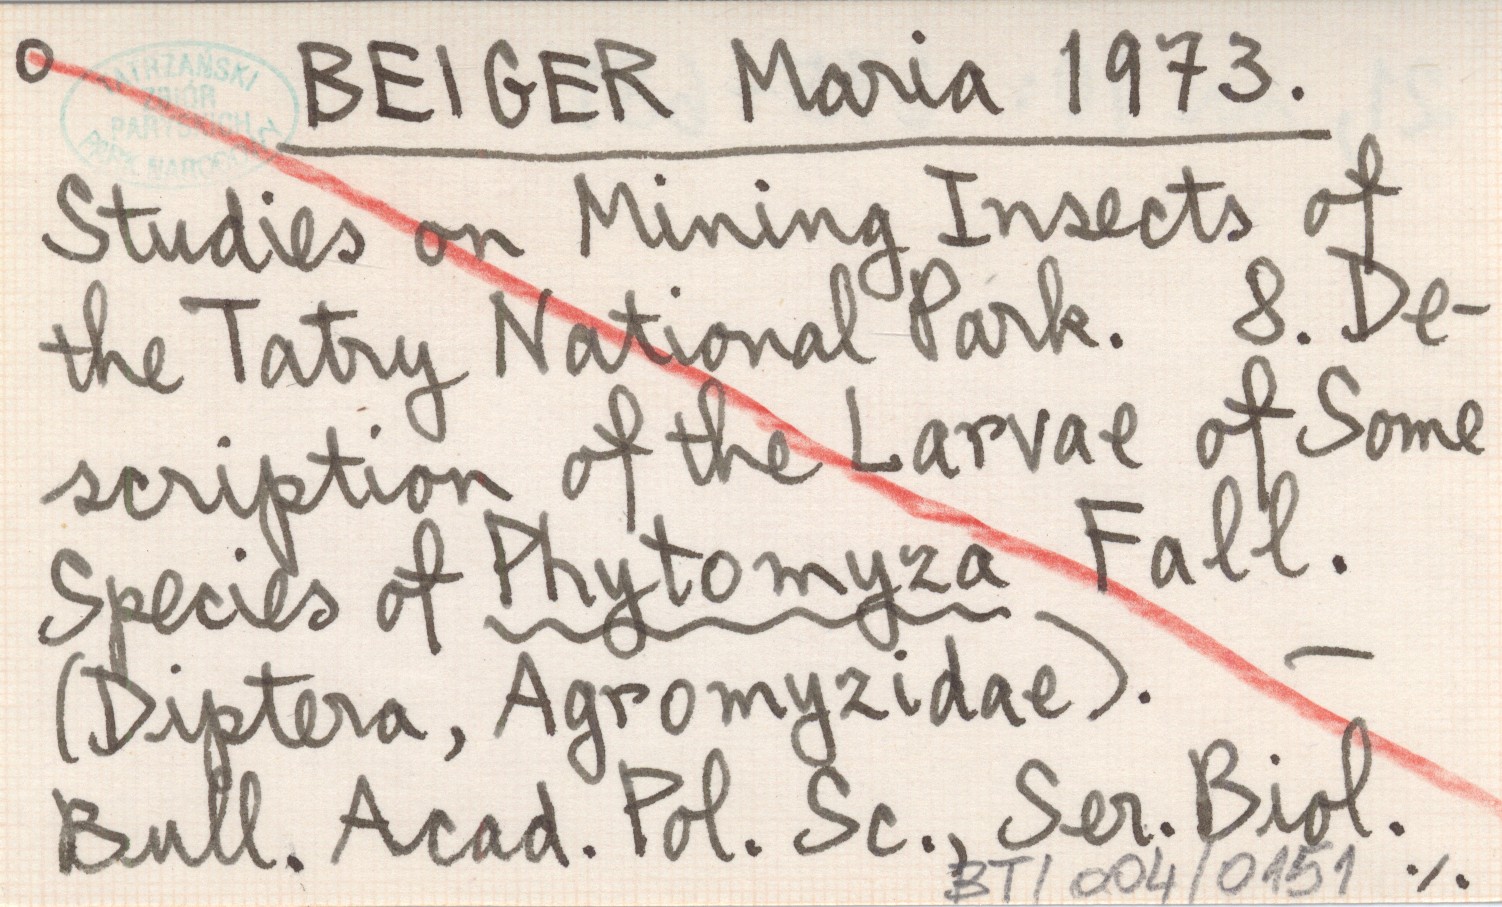 BEIGER Maria 1973.
TATRZAŃSKI
ZBIÓR
PARYSKICH
PARK NARODOWY
Studies on Mining Insects of
the Tatry National Park. 8. De-
scription of the Larvae of Some
Species of Phytomyza Fall.
(Diptera, Agromyzidae). —
Bull. Acad. Pol. Sc., Ser. Biol.
BT/004/0151 ./.